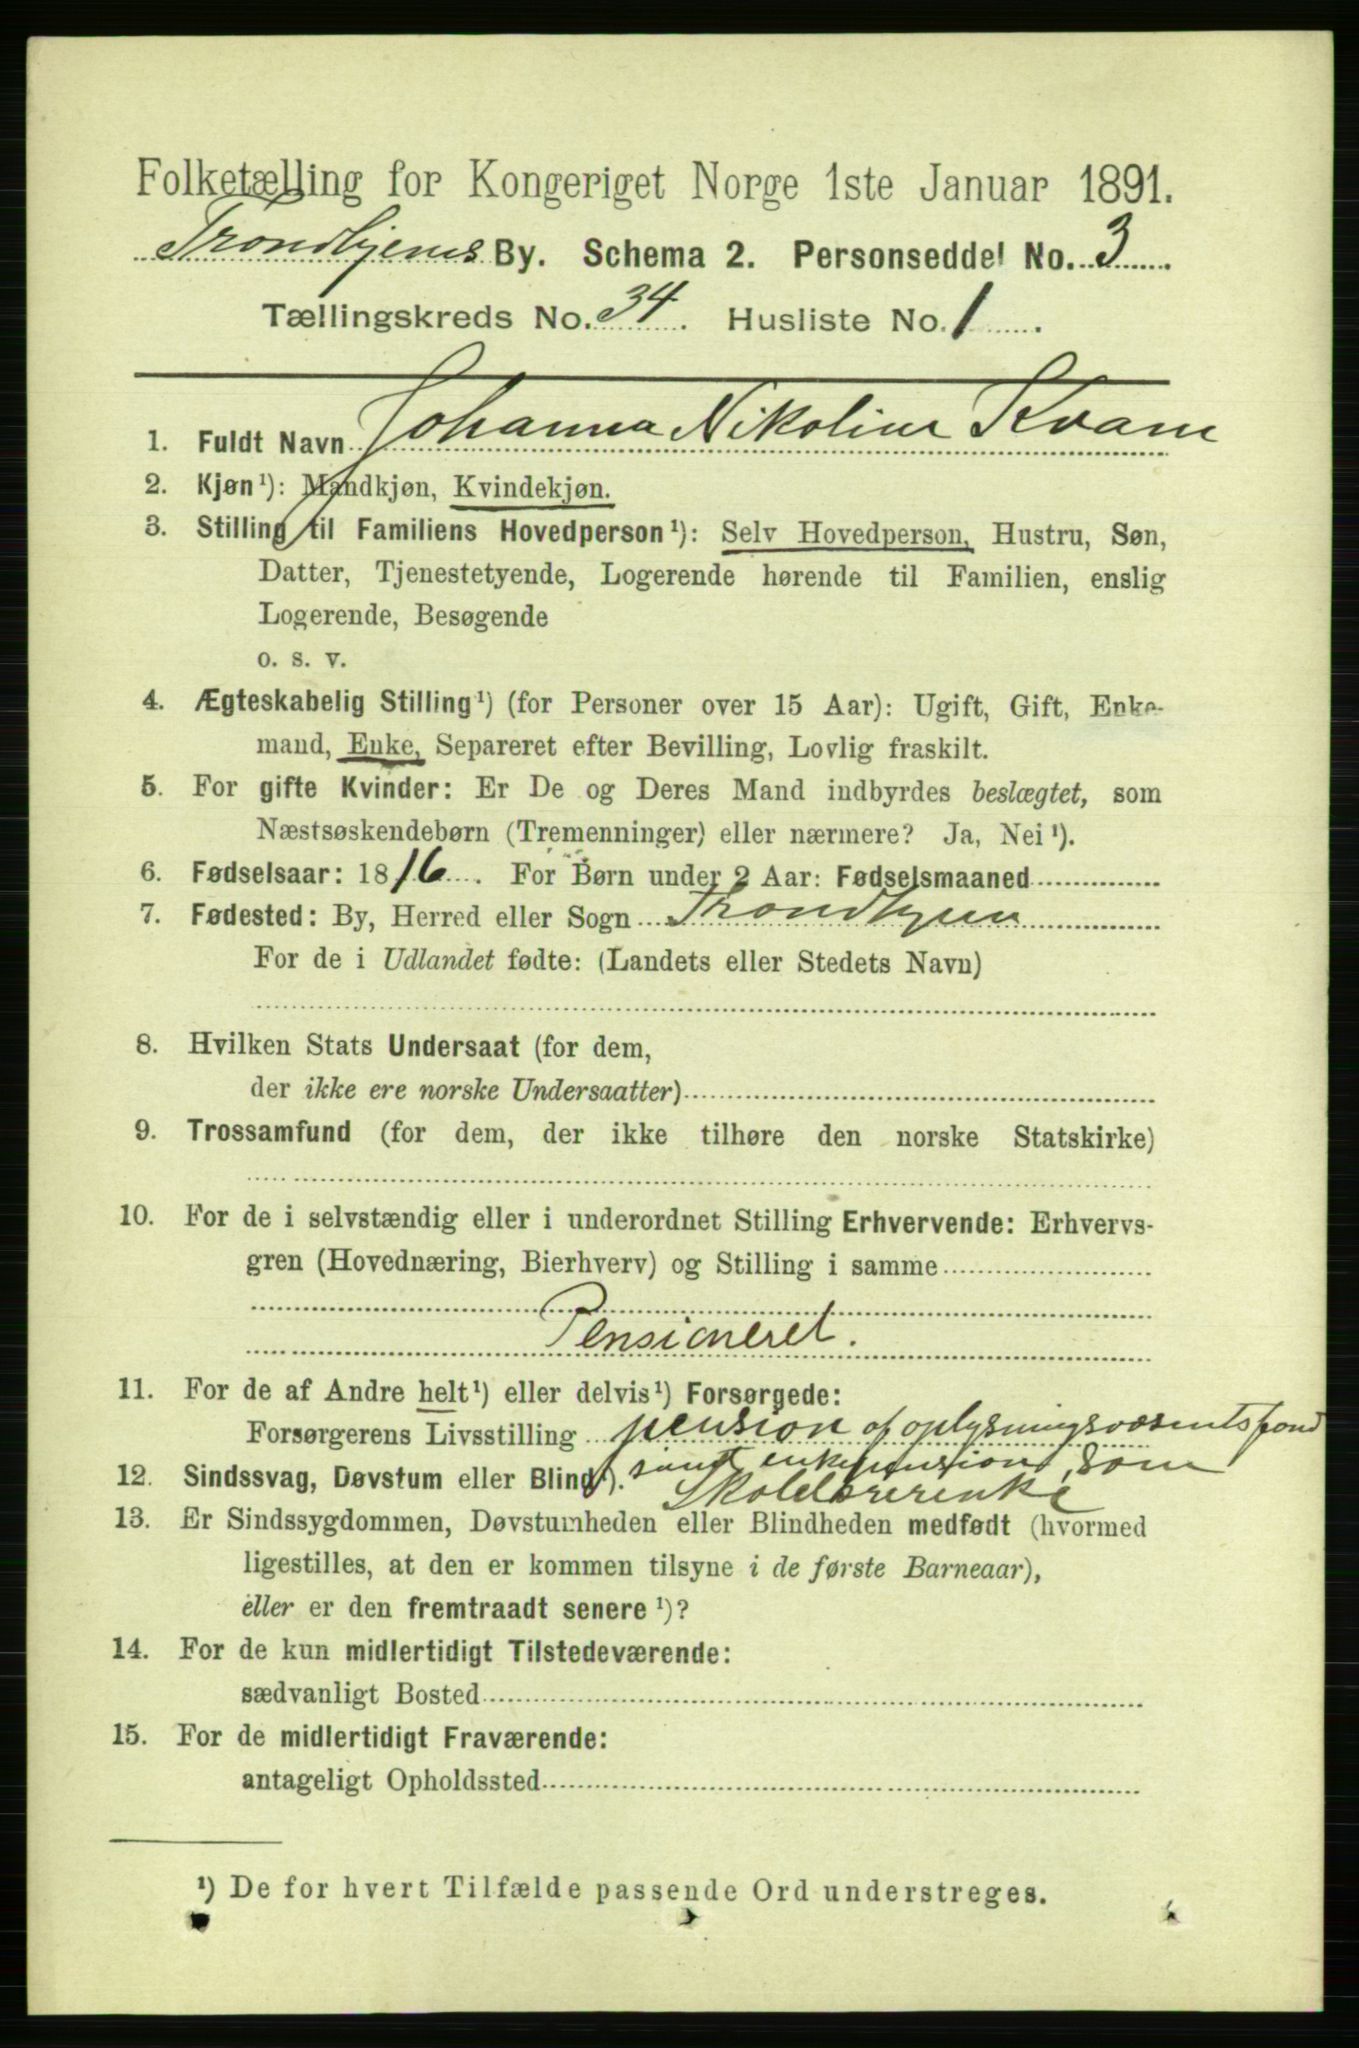 Folketælling for Kongeriget Norge 1ste Januar 1891.
Trondhjems By. Schema 2. Personseddel No. 3
Tællingskreds No. 34. Husliste No. 1.
1. Fuldt Navn Johanna Nikoline Kvam
2. Kjøn¹): Mandkjøn, Kvindekjøn.
3. Stilling til Familiens Hovedperson¹): Selv Hovedperson, Hustru, Søn,
Datter, Tjenestetyende, Logerende hørende til Familien, enslig
Logerende, Besøgende
o. s. v.
4. Ægteskabelig Stilling¹) (for Personer over 15 Aar): Ugift, Gift, Enke-
mand, Enke, Separeret efter Bevilling, Lovlig fraskilt.
5. For gifte Kvinder: Er De og Deres Mand indbyrdes beslægtet, som
Næstsøskendebørn (Tremenninger) eller nærmere? Ja, Nei¹).
6. Fødselsaar: 1816. For Børn under 2 Aar: Fødselsmaaned
7. Fødested: By, Herred eller Sogn Trondhjem
For de i Udlandet fødte: (Landets eller Stedets Navn)
8. Hvilken Stats Undersaat (for dem,
der ikke ere norske Undersaatter)
9. Trossamfund (for dem, der ikke tilhøre den norske Statskirke)
10. For de i selvstændig eller i underordnet Stilling Erhvervende: Erhvervs-
gren (Hovednæring, Bierhverv) og Stilling i samme
Pensioneret.
11. For de af Andre helt¹) eller delvis¹) Forsørgede:
Forsørgerens Livsstilling pension af oplysningsvæsentsfond
12. Sindssvag, Døvstum eller Blind¹). samt enkepension, som
Skolelærerenke
13. Er Sindssygdommen, Døvstumheden eller Blindheden medfødt (hvormed
ligestilles, at den er kommen tilsyne i de første Barneaar),
eller er den fremtraadt senere¹)?
14. For de kun midlertidigt Tilstedeværende:
sædvanligt Bosted
15. For de midlertidigt Fraværende:
antageligt Opholdssted
¹) De for hvert Tilfælde passende Ord understreges.